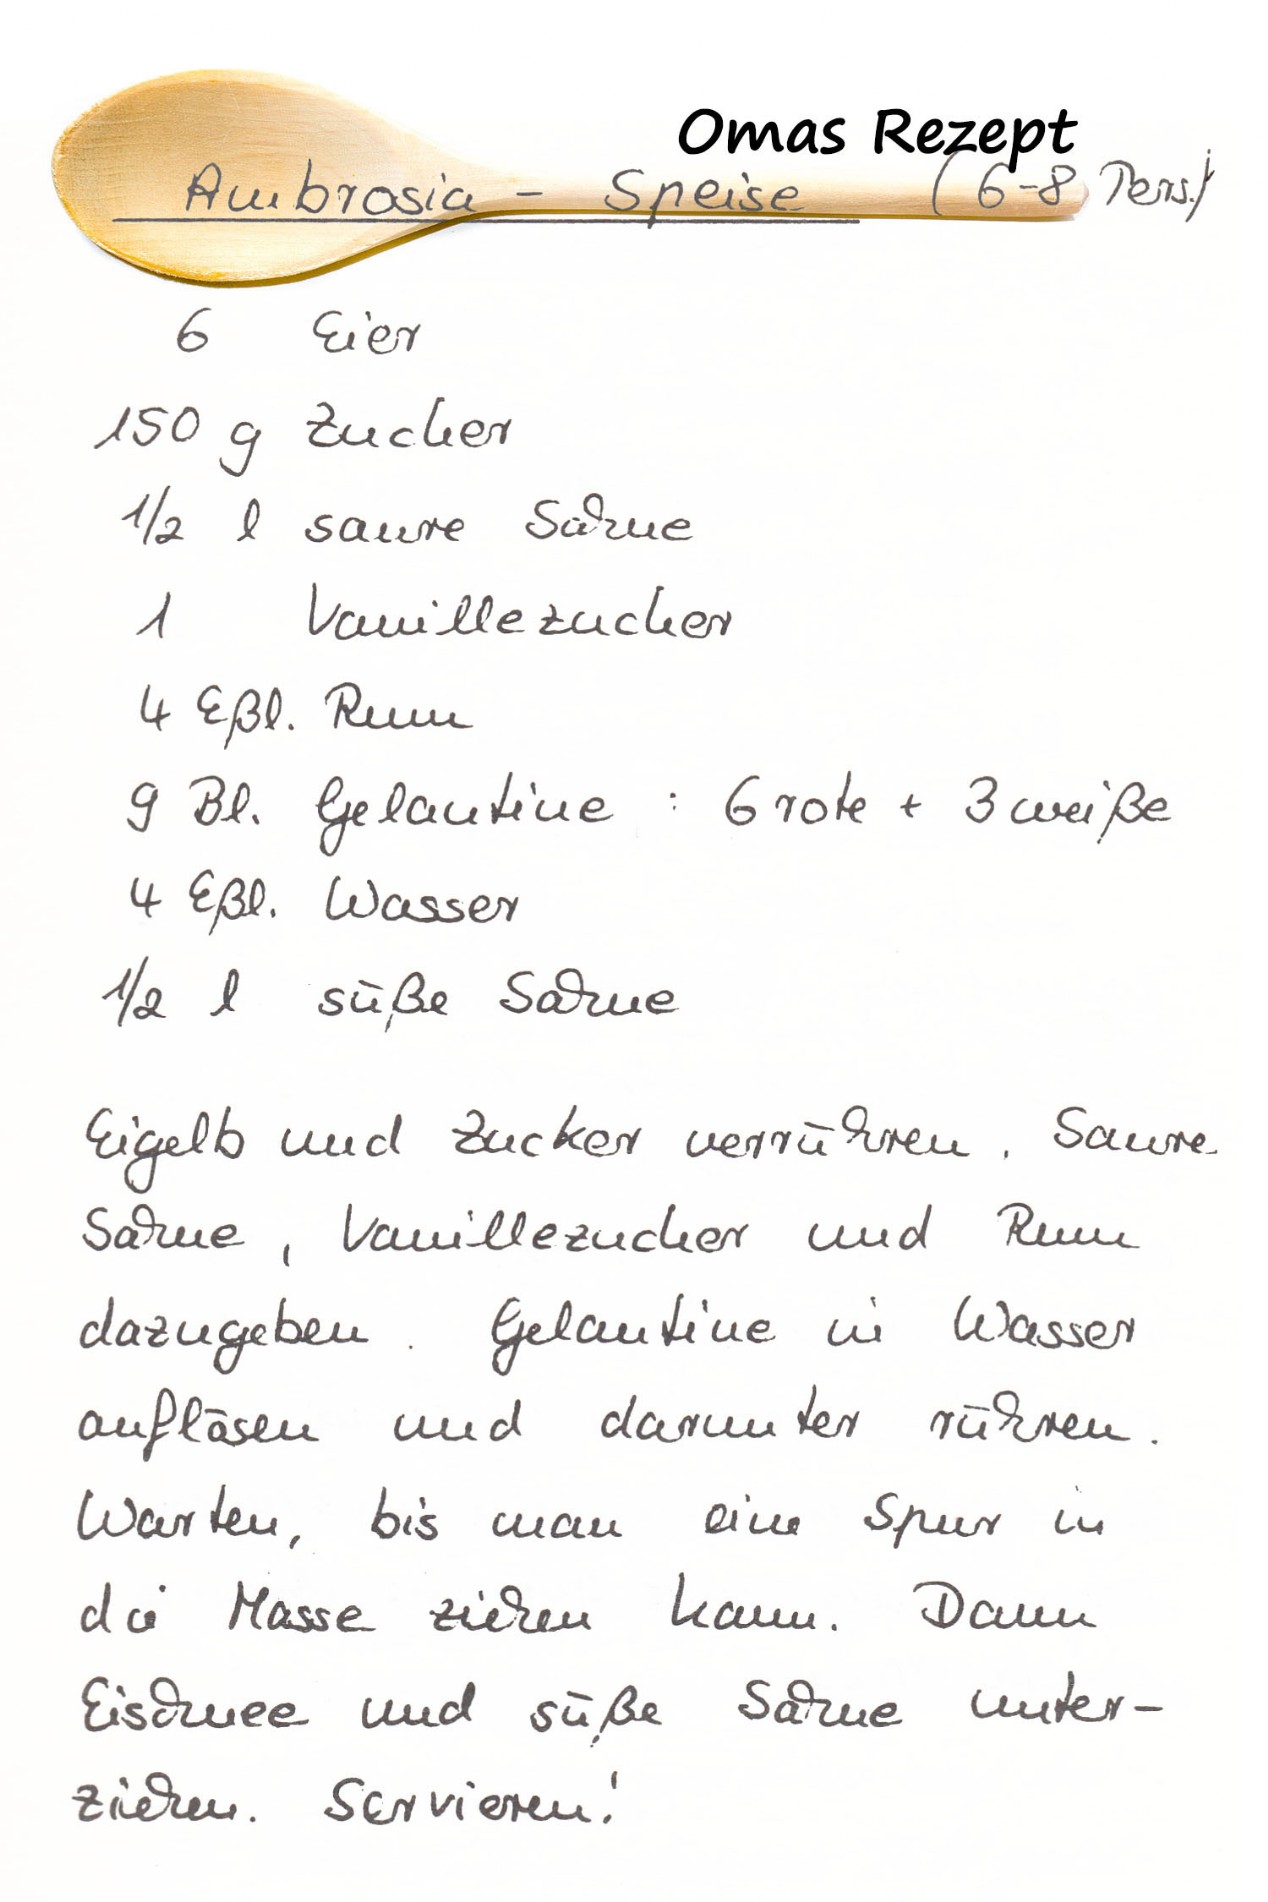 Omas Rezept
Ambrosia - Speise (6-8 Pers.)
6 Eier
150 g Zucker
1/2 l saure Sahne
1 Vanillezucker
4 Eßl. Rum
9 Bl. Gelantine : 6 rote + 3 weiße
4 Eßl. Wasser
1/2 l süße Sahne
Eigelb und Zucker verrühren. Saure
Sahne, Vanillezucker und Rum
dazugeben. Gelantine in Wasser
auflösen und darunter rühren.
Warten, bis man eine Spur in
die Masse ziehen kann. Dann
Eischnee und süße Sahne unter-
ziehen. Servieren!